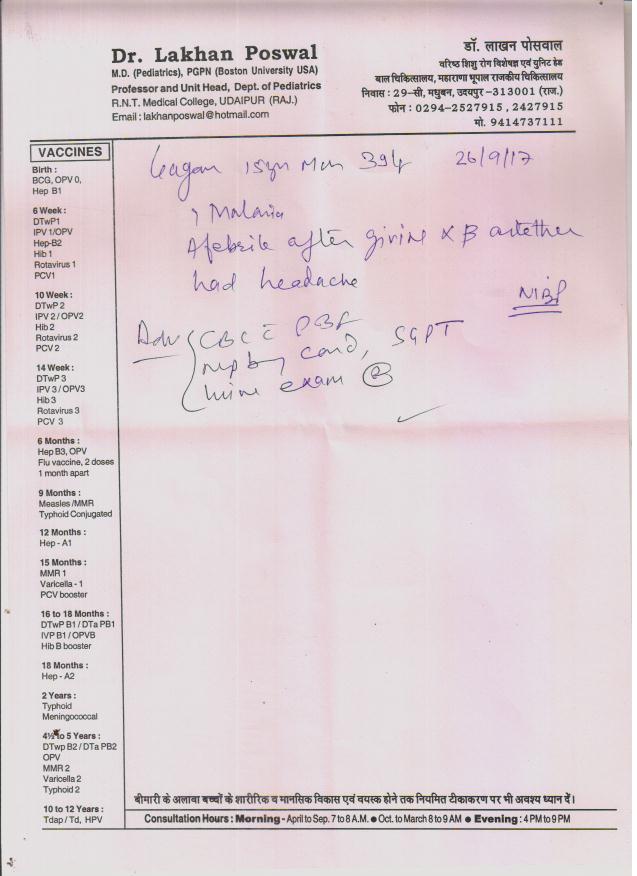 Dr. Lakhan Poswal
M.D. (Pediatrics), PGPN (Boston University USA)
Professor and Unit Head, Dept. of Pediatrics
R.N.T. Medical College, UDAIPUR (RAJ.)
Email : lakhanposwal@hotmail.com
डॉ. लाखन पोसवाल
वरिष्ठ शिशु रोग विशेषज्ञ एवं युनिट हेड
बाल चिकित्सालय, महाराणा भूपाल राजकीय चिकित्सालय
निवास : 29-सी, मधुबन, उदयपुर -313001 (राज.)
फोन : 0294-2527915 , 2427915
मो. 9414737111
VACCINES
Birth :
BCG, OPV 0,
Hep B1
6 Week :
DTwP1
IPV 1/OPV
Hep-B2
Hib 1
Rotavirus 1
PCV1
10 Week :
DTwP 2
IPV 2 / OPV2
Hib 2
Rotavirus 2
PCV 2
14 Week :
DTwP 3
IPV 3 / OPV3
Hib 3
Rotavirus 3
PCV 3
6 Months :
Hep B3, OPV
Flu vaccine, 2 doses
1 month apart
9 Months :
Measles /MMR
Typhoid Conjugated
12 Months :
Hep - A1
15 Months :
MMR 1
Varicella - 1
PCV booster
16 to 18 Months :
DTwP B1 / DTa PB1
IVP B1 / OPVB
Hib B booster
18 Months :
Hep - A2
2 Years :
Typhoid
Meningococcal
4½ to 5 Years :
DTwp B2 / DTa PB2
OPV
MMR 2
Varicella 2
Typhoid 2
10 to 12 Years :
Tdap / Td, HPV
Gagan 15yr 26/9/17
? Malaria
Afebrile after giving
had headache
NIBP
Adv CBC PBF
card, SGPT
urine exam
बीमारी के अलावा बच्चों के शारीरिक व मानसिक विकास एवं वयस्क होने तक नियमित टीकाकरण पर भी अवश्य ध्यान दें।
Consultation Hours : Morning - April to Sep. 7 to 8 A.M. ● Oct. to March 8 to 9 AM ● Evening : 4 PM to 9 PM